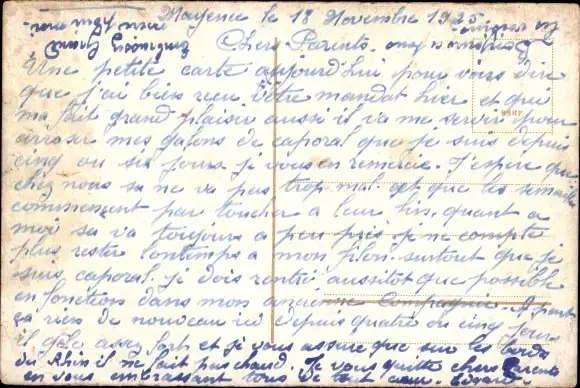 Mayence le 18 Novembre 1925
Chers Parents
Une petite carte aujourd'hui pour vous dire
que j'ai bien recu votre mandat hier et qui
ma fait grand plaisir aussi il va me servir pour
arroser mes galons de caporal que je suis depuis
cinq ou six jours. je vous en remercie. J'espère que
chez nous sa ne va pas trop mal. et que les semailles
commencent par toucher à leur fin. quant a
moi sa va toujours a peu près je ne compte
plus rester lontemps a mon filon. surtout que je
suis caporal. je dois rentré aussitot que possible
en fonctions dans mon ancienne Compagnie. A part
ça rien de nouveau ici depuis quatre ou cinq jours
il gèle assez fort et je vous assure que sur les bords
du Rhin il ne fait pas chaud. Je vous quitte chers Parents
en vous embrassant tous de tout cœur.